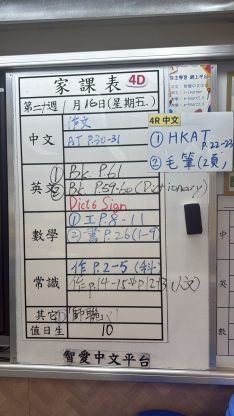 家課表 4D
第二十週 1月16日(星期五)
中文
作文
AT P.30-31
4R 中文
① HKAT P.22-23
② 毛筆(2頁)
英文
① Bk P.61
② Bk P.59-60 (Dictionary)
Dict 6 Sign
數學
① 工 P.8-11
② 書 P.26 (1-9)
常識
作 P.2-5 (科)
作 P.14-15
其它
值日生 10
智愛中文平台